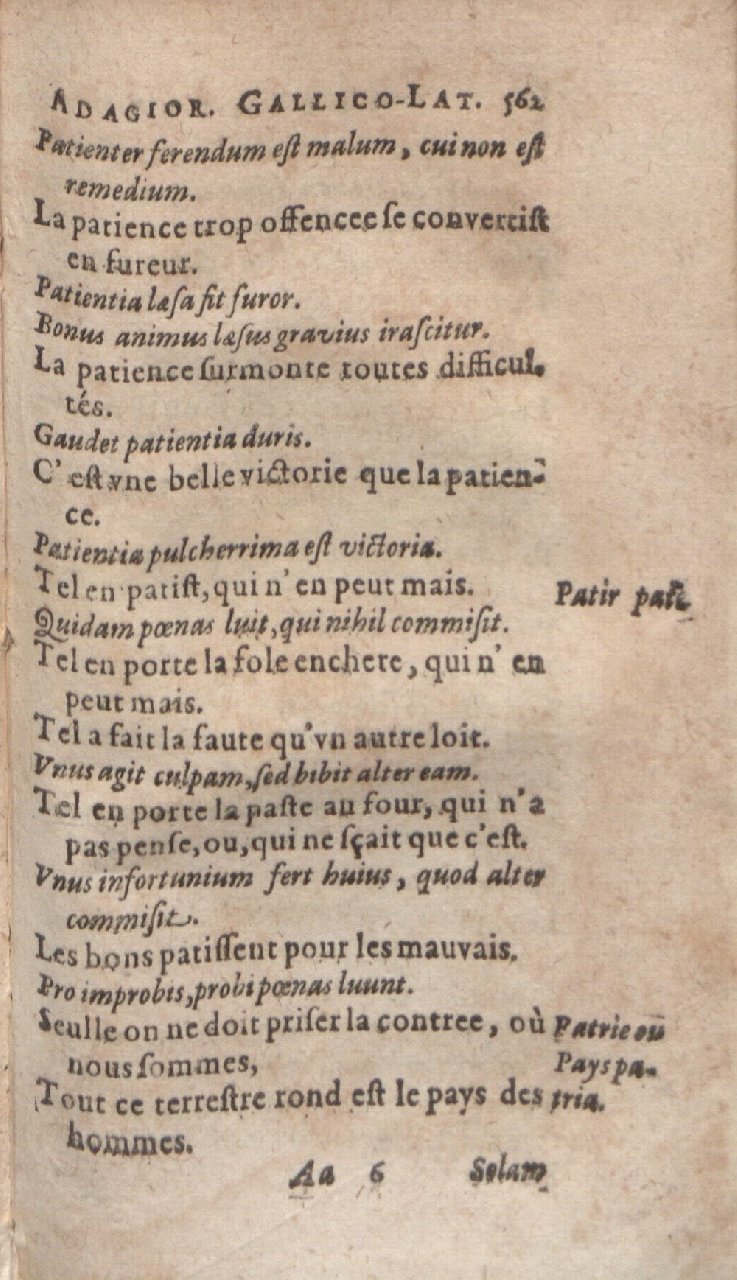 ADAGIOR. GALLICO-LAT. 562
Patienter ferendum est malum, cui non est
remedium.
La patience trop offencee se convertist
en fureur.
Patientia læsa fit furor.
Bonus animus læsus gravius irascitur.
La patience surmonte toutes difficul-
tés.
Gaudet patientia duris.
C'est vne belle victorie que la patien-
ce.
Patientia pulcherrima est victoria.
Tel en patist, qui n'en peut mais.
Patir pati
Quidam pœnas luit, qui nihil commisit.
Tel en porte la fole enchere, qui n'en
peut mais.
Tel a fait la faute qu'vn autre loit.
Vnus agit culpam, sed bibit alter eam.
Tel en porte la paste au four, qui n'a
pas pense, ou, qui ne sçait que c'est.
Vnus infortunium fert huius, quod alter
commisit.
Les bons patissent pour les mauvais.
Pro improbis, probi pœnas luunt.
Seulle on ne doit priser la contree, où
nous sommes,
Patrie ou
Pays pa-
tria.
Tout ce terrestre rond est le pays des
hommes.
Aa 6 Solam